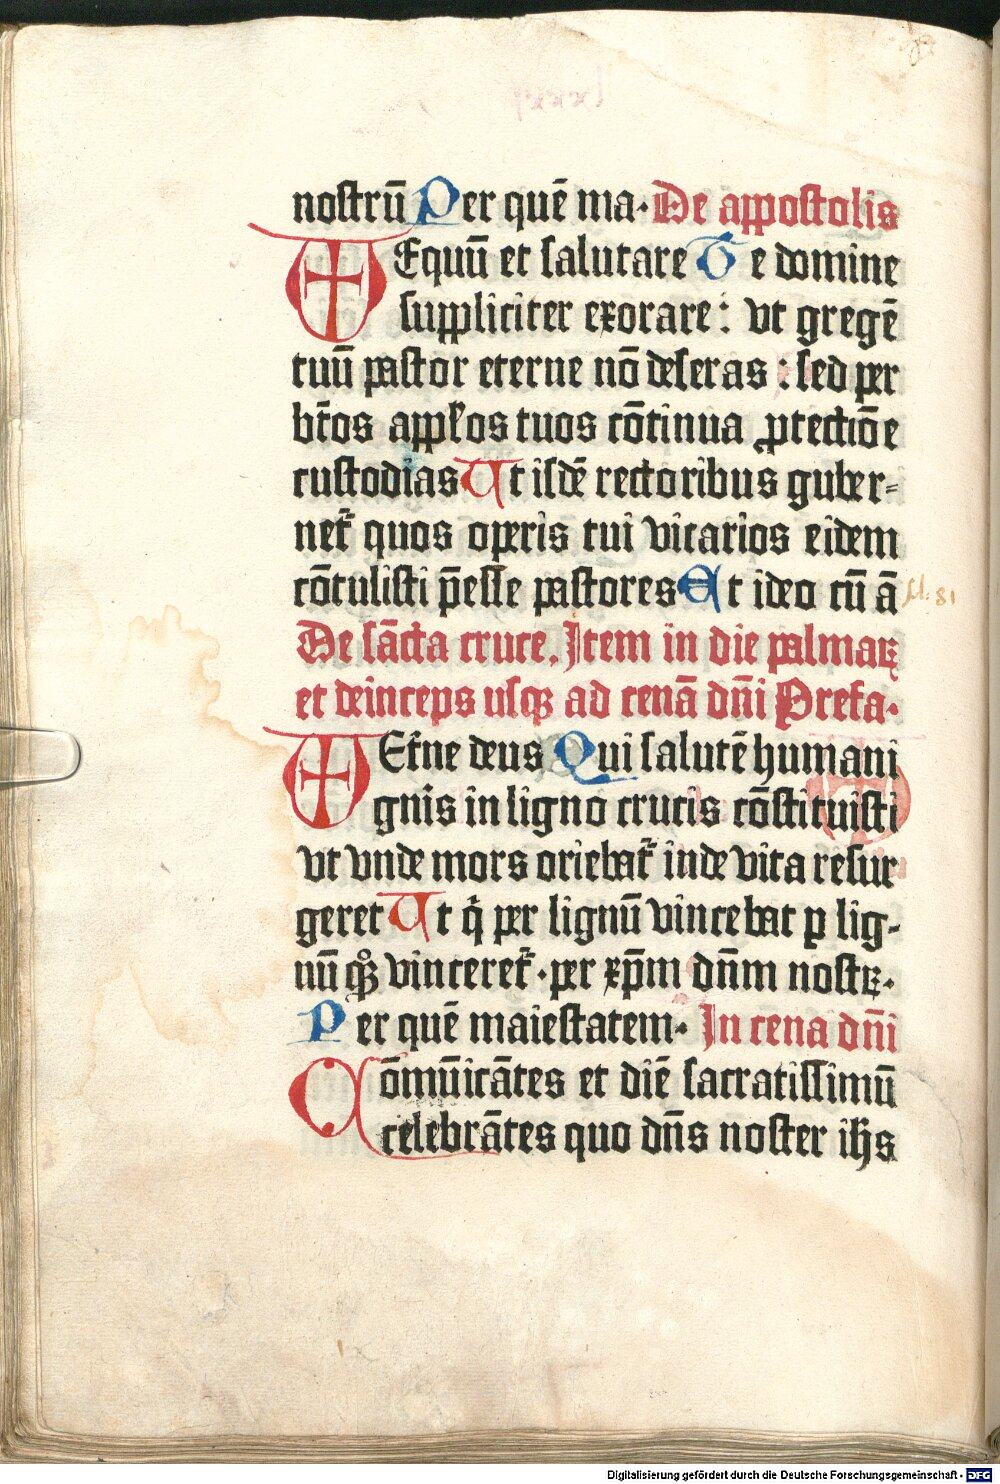 nostrū Per quē ma· De appostolis
Equū et salutare Te domine
suppliciter exorare: vt gregē
tuū pastor eterne nō deseras : sed per
bt̄os appl̄os tuos cōtinua ꝓtectiōe
custodias Ut isdē rectoribus guber-
net᷑ quos operis tui vicarios eidem
cōtulisti p̄esse pastores Et ideo cū ā
De sācta cruce. Item in die palmaꝝ
et deinceps usqꝫ ad cenā dn̄i Prefa·
Et̄ne deus Qui salutē humani
gn̄is in ligno crucis cōstituisti
vt vnde mors oriebat᷑ inde vita resur
geret Ut q̇ per lignū vincebat ꝑ lig-
nū qꝫ vinceret᷑· per xp̄m dn̄m nostꝝ·
Per quē maiestatem· In cena dn̄i
Cōmūicātes et diē sacratissimū
celebrātes quo dn̄s noster ih̄s
Digitalisierung gefördert durch die Deutsche Forschungsgemeinschaft - DFG